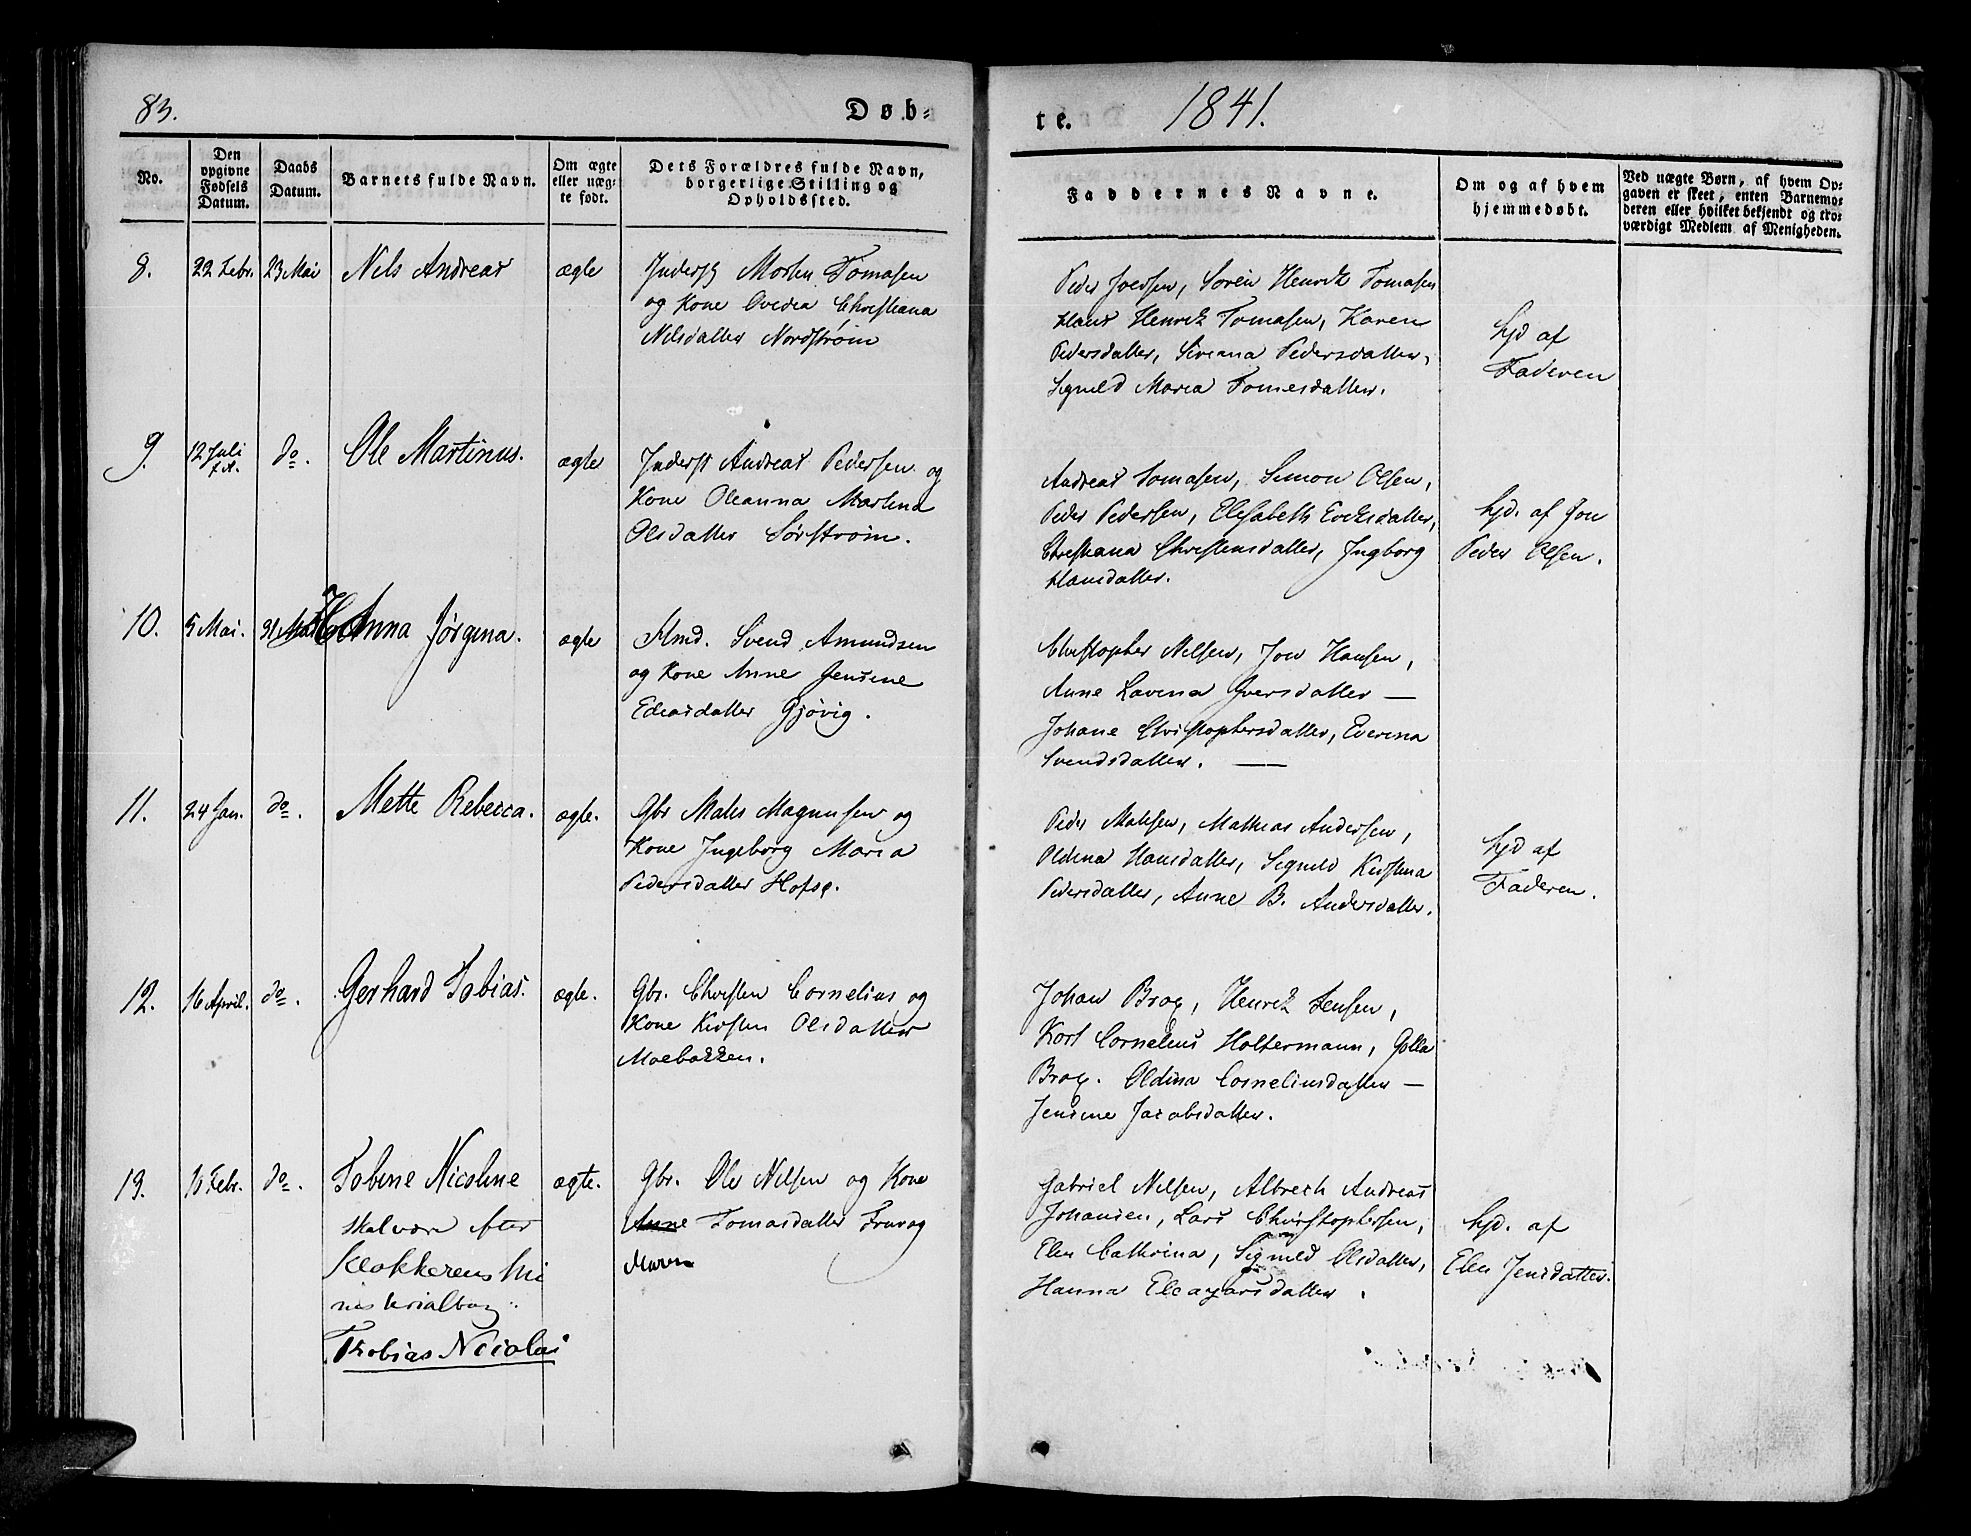 83.
Døb-
te.
1841.
No.
Den
opgivne
Fødsels
Datum.
Daabs
Datum.
Barnets fulde Navn.
Om ægte
eller uæg-
te født.
Dets Forældres fulde Navn,
borgerlige Stilling og
Opholdssted.
Faddernes Navne.
Om og af hvem
hjemmedøbt.
Ved uægte Børn, af hvem Op-
gaven er skeet, enten Barnemo-
deren eller hvilket bekjendt og tro-
værdigt Medlem af Menigheden.
8.
22 Febr.
23 Mai
Nils Andreas
ægte
Inderst Morten Tomasen
og Kone Ovedia Christiana
Nilsdatter Nordstrøm
Peder Joensen, Sören Henrik Tomasen
Hans Henrik Tomasen, Karen
Pedersdatter, Siviana Pedersdatter,
Signild Maria Tomesdatter.
hjd af
Faderen
9.
12 Juli
f. A.
do.
Ole Martinus.
ægte
Inderst Andreas Pedersen og
Kone Oleanna Martina
Olsdatter Sørstrøm.
Andreas Tomasen, Simon Olsen,
Peder Pedersen, Elisabeth Eriksdatter,
Christiana Christensdatter, Ingborg
Hansdatter.
hjd. af Jon
Peder Olsen.
10.
5 Mai.
31 Mai
Anna Jørgina.
ægte
Hmd. Svend Amundsen
og Kone Anne Jensine
Eliasdatter Gjøvig.
Christopher Nilsen, Jon Hansen,
Anne Lavina Iversdatter —
Johane Christophersdatter, Everina
Svendsdatter. —
11.
24 Jan.
do.
Mette Rebecca.
ægte.
Gbr Mates Magnusen og
Kone Ingeborg Maria
Pedersdatter Hofsø.
Peder Matesen, Mathias Andersen,
Oldina Hansdatter, Signild Kirstina
Pedersdatter, Anne B. Andersdatter.
hjd af
Faderen.
12.
16 April.
do.
Gerhard Tobias.
ægte.
Gbr. Christen Cornelius og
Kone Kirsten Olsdatter
Moebakken.
Johan Brox, Henrik Jensen,
Karl Cornelius Holtermann, Golla
Brox. Oldina Corneliusdatter —
Jensine Jacobsdatter.
13.
16 Febr.
do.
Tobine Nicoline
skal være efter
Klokkerens Mi
nisterialbog:
Tobias Nicolai
ægte.
Gbr. Ole Nilsen og Kone
Anne Tomasdatter
Maren
Gabriel Nilsen, Albrech Andreas
Johansen, Lars Christophersen,
Elen Cathrina, Signild Olsdatter,
Hanna Eleazarsdatter.
hjd. af
Elen Jensdatter.